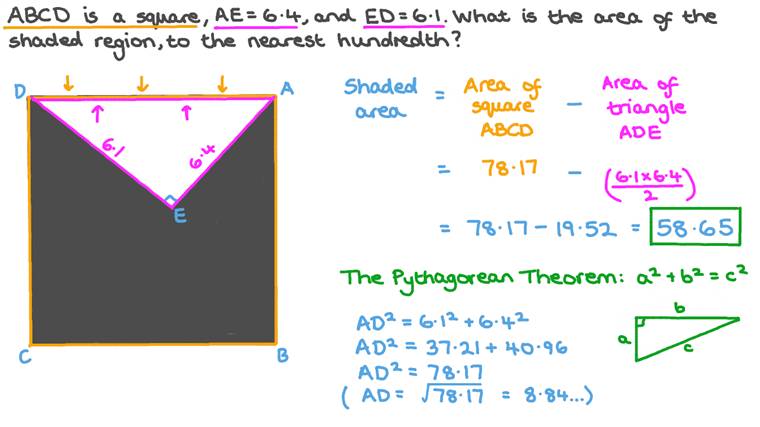 ABCD is a square, AE = 6·4, and ED = 6·1. What is the area of the
shaded region, to the nearest hundredth?
D
A
6·1
6·4
E
C
B
Shaded area = Area of square ABCD − Area of triangle ADE
= 78·17 − (6·1×6·4/2)
= 78·17 − 19·52 = 58·65
The Pythagorean Theorem: a² + b² = c²
AD² = 6·1² + 6·4²
AD² = 37·21 + 40·96
AD² = 78·17
( AD = √78·17 = 8·84...)
b
a
c